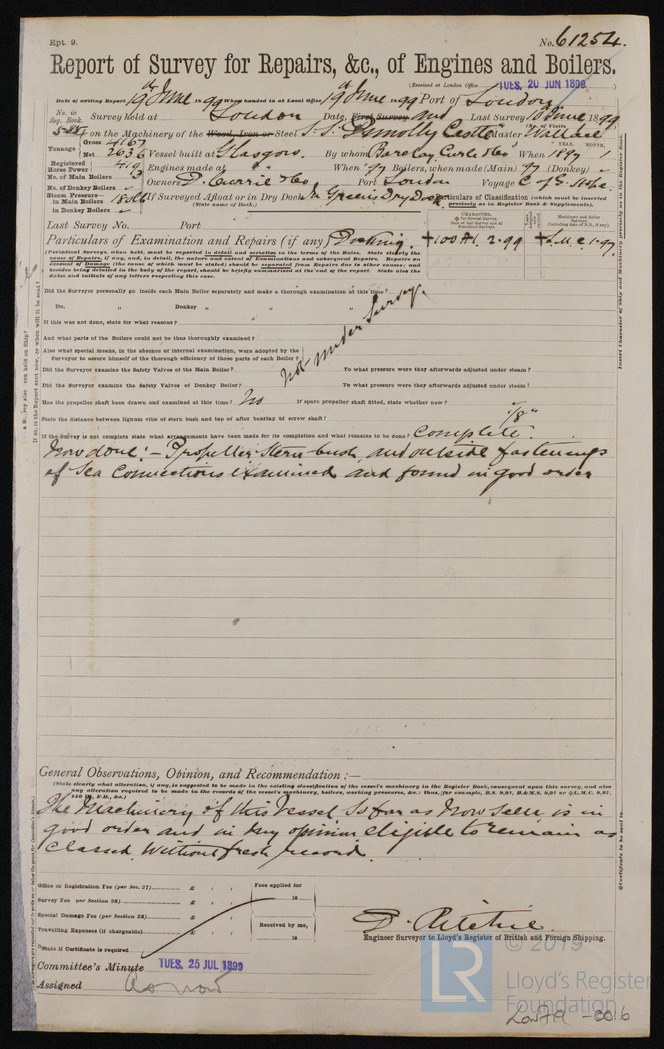 Rpt. 9.
No. 61254.
Report of Survey for Repairs, &c., of Engines and Boilers.
(Received at London Office TUES. 20 JUN 1899
Date of writing Report 19th June 1899 When handed in at Local Office 19th June 1899 Port of London
No. in Reg. Book. Survey held at London Date, First Survey and Last Survey 10 June 1899
(No. of Visits
on the Machinery of the Wood, Iron or Steel S.S. Dunolly Castle Master Wallace
Tonnage Gross 4167
Net 2636 Vessel built at Glasgow. By whom Barclay Curle & Co When 1897
YEAR. MONTH.
Registered Horse Power 419 Engines made at " When 97 Boilers, when made (Main) 97 (Donkey)
No. of Main Boilers 3
No. of Donkey Boilers Owners D. Currie & Co Port London Voyage C of G. Hope
Steam Pressure—
in Main Boilers 180 lb If Surveyed Afloat or in Dry Dock In Greens Dry Dock.
in Donkey Boilers (State name of Dock.)
Particulars of Classification (which must be inserted precisely as in Register Book & Supplements).
Last Survey No. Port
Particulars of Examination and Repairs (if any) Docking. +100A1. 2.99 +L.M.C. 1.97
(Periodical Surveys, when held, must be reported in detail and seriatim in the terms of the Rules. State clearly the
cause of Repairs, if any, and, in detail, the nature and extent of Examinations and consequent Repairs. Repairs on
account of Damage (the cause of which must be stated) should be separated from Repairs due to other causes; and
besides being detailed in the body of the report, should be briefly summarized at the end of the report. State also the
dates and initials of any letters respecting this case.
Did the Surveyor personally go inside each Main Boiler separately and make a thorough examination at this time?
Do. " Donkey " " "
If this was not done, state for what reasons?
Not under Survey.
And what parts of the Boilers could not be thus thoroughly examined?
Also what special means, in the absence of internal examination, were adopted by the
Surveyor to assure himself of the thorough efficiency of those parts of each Boiler?
Did the Surveyor examine the Safety Valves of the Main Boiler? To what pressure were they afterwards adjusted under steam?
Did the Surveyor examine the Safety Valves of Donkey Boiler? To what pressure were they afterwards adjusted under steam?
Has the propeller shaft been drawn and examined at this time? No If spare propeller shaft fitted, state whether new?
State the distance between lignum vitæ of stern bush and top of after bearing of screw shaft? 1/8"
If the Survey is not complete state what arrangements have been made for its completion and what remains to be done? Complete.
Now done:- Propeller Stern bush, and outside fastenings
of Sea Connections examined and found in good order
General Observations, Opinion, and Recommendation :—
(State clearly what alteration, if any, is suggested to be made in the existing classification of the vessel's machinery in the Register Book, consequent upon this survey, and also
any alteration required to be made in the records of the vessel's machinery, boilers, working pressures, &c.: thus, for example, B.S. 9,97, B.&M.S. 9,97 or L.M.C. 9,97,
140 lb., F.D., &c.)
The Machinery of this Vessel so far as now seen, is in
good order and in my opinion eligible to remain as
Classed Without fresh record.
Office or Registration Fee (per Sec. 27) £ Fees applied for
Survey Fee (per Section 28) £ 18
Special Damage Fee (per Section 28) £
Received by me,
Travelling Expenses (if chargeable) £ 18
State if Certificate is required
D. Ritchie.
Engineer Surveyor to Lloyd's Register of British and Foreign Shipping.
Committee's Minute TUES. 25 JUL 1899
Assigned As now
© 2019
LR
Lloyd's Register
Foundation